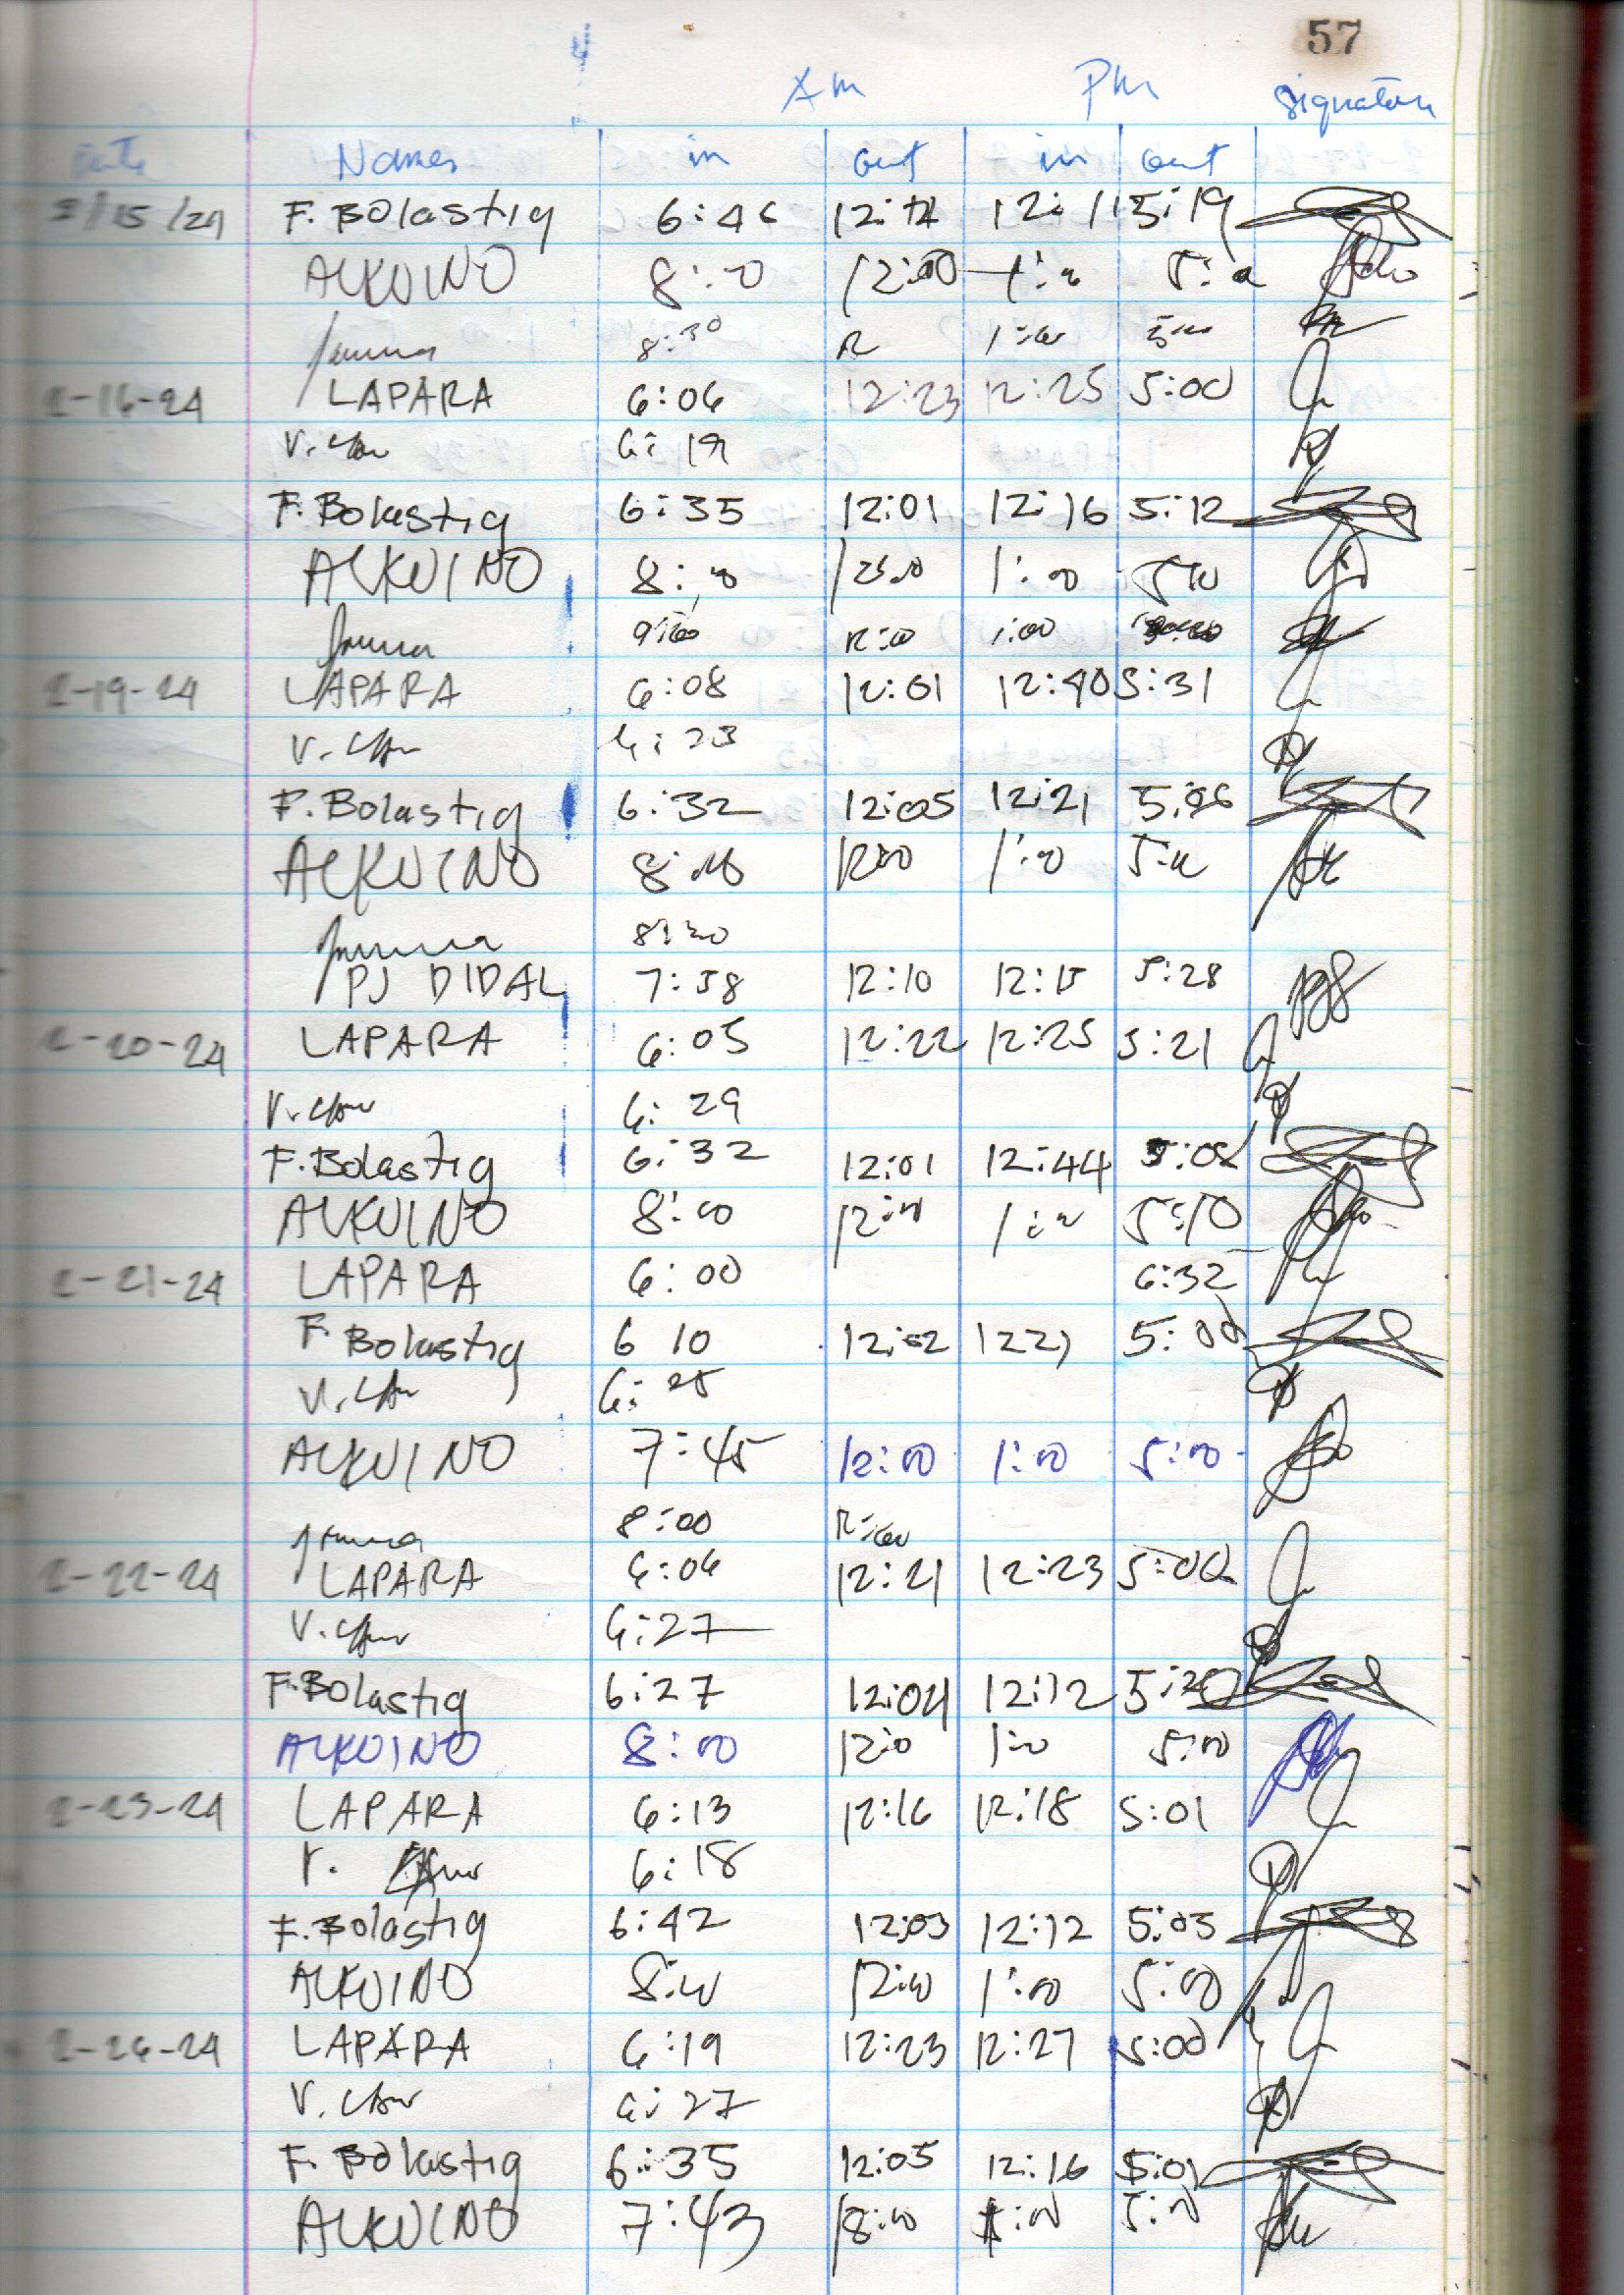 57
Am Pm Signature
Date Names in out in out
2/15/24 F. Bolastig 6:46 12: 12:11 5:19
ALKUINO 8:00 12:00 1:00 5:00
8:30 12 1:00 5:00
2-16-24 LAPARA 6:06 12:23 12:25 5:00
V. 6:19
F. Bolastig 6:35 12:01 12:16 5:12
ALKUINO 8:00 12:00 1:00 5:00
9:00 12:00 1:00
2-19-24 LAPARA 6:08 12:01 12:40 5:31
V. 6:23
F. Bolastig 6:32 12:05 12:21 5:06
ALKUINO 8:00 12:00 1:00 5:00
8:30
PJ DIDAL 7:58 12:10 12:15 5:28
2-20-24 LAPARA 6:05 12:22 12:25 5:21
V. 6:29
F. Bolastig 6:32 12:01 12:44 5:08
ALKUINO 8:00 12:00 1:00 5:10
2-21-24 LAPARA 6:00 6:32
F. Bolastig 6 10 12:02 1221 5:00
V. 6:25
ALKUINO 7:45 12:00 1:00 5:00
8:00 12:00
2-22-24 LAPARA 6:06 12:21 12:23 5:00
V. 6:27
F. Bolastig 6:27 12:04 12:12 5:20
ALKUINO 8:00 12:0 1:0 5:00
2-23-24 LAPARA 6:13 12:16 12:18 5:01
V. 6:18
F. Bolastig 6:42 12:03 12:12 5:03
ALKUINO 8:00 12:00 1:00 5:00
2-26-24 LAPARA 6:19 12:23 12:27 5:00
V. 6:27
F. Bolastig 6:35 12:05 12:16 5:01
ALKUINO 7:43 12:00 1:00 5:00